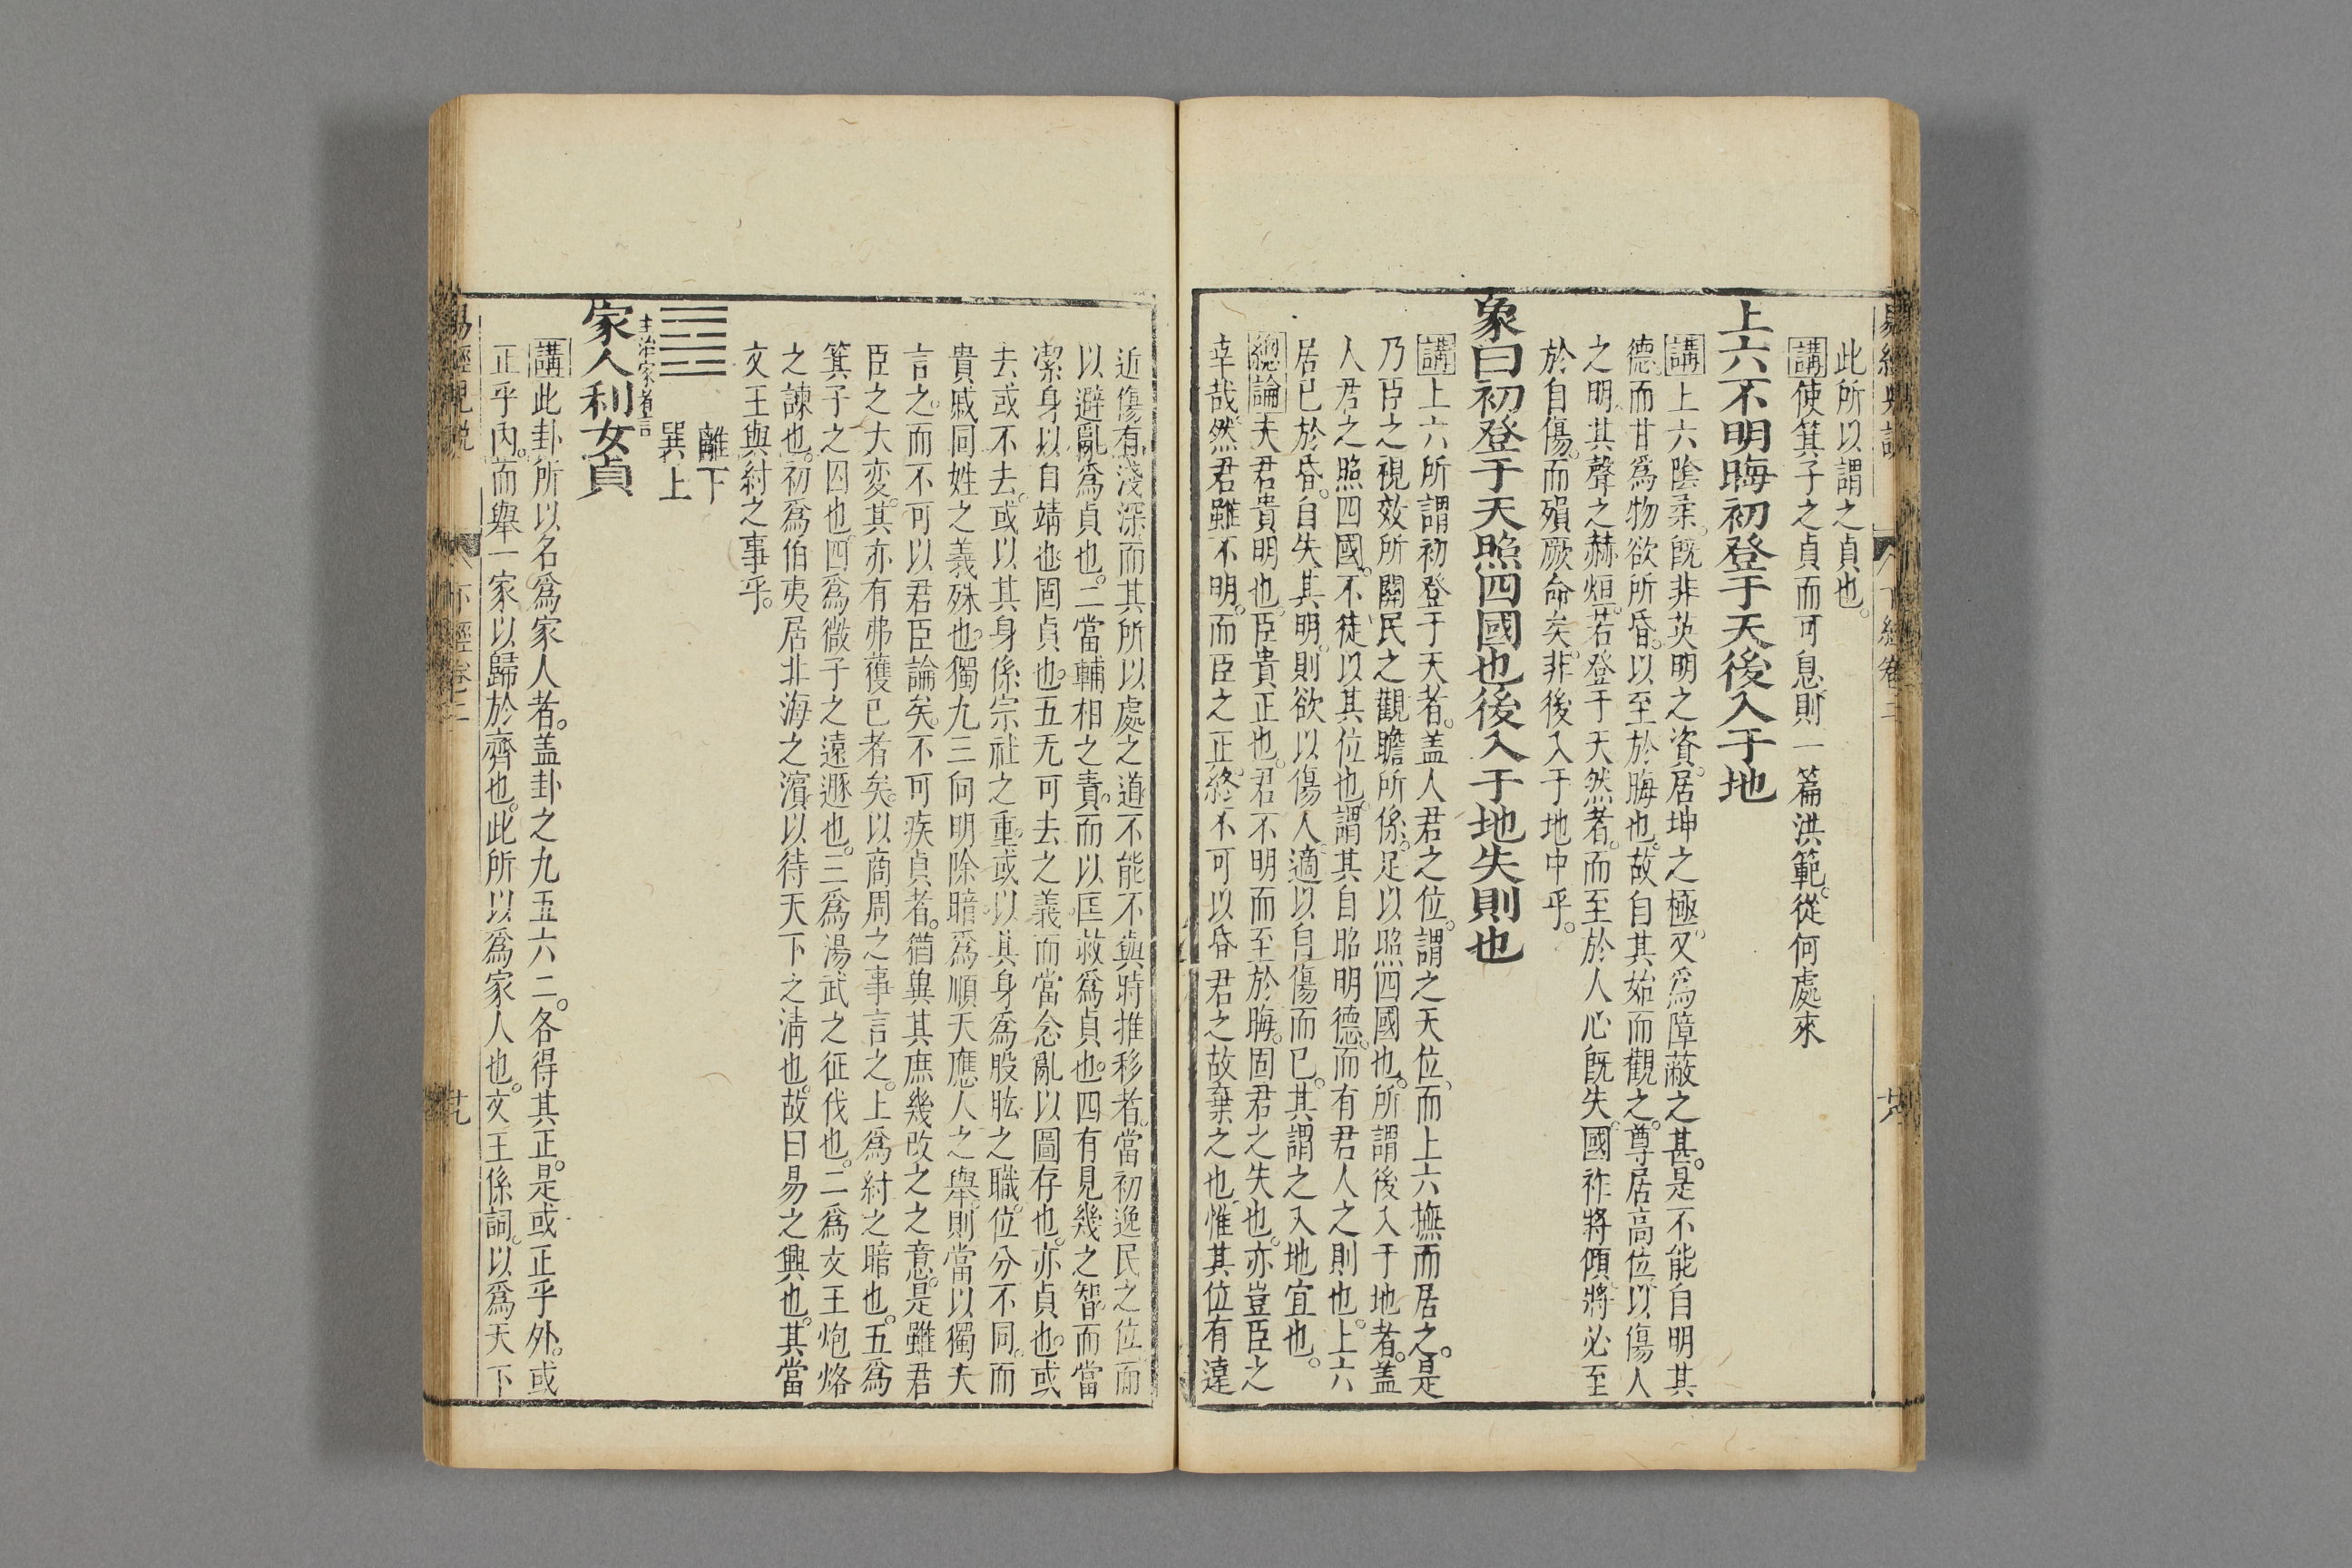 易經兒說
下經卷二
此所以謂之貞也。
講使箕子之貞而可息則一篇洪範。從何處來
上六不明晦初登于天後入于地
講上六陰柔。旣非英明之資。居坤之極。又爲障蔽之甚。是不能自明其
德。而甘爲物欲所昏。以至於晦也。故自其始而觀之。尊居高位。以傷人
之明。其聲之赫烜。若登于天然者。而至於人心旣失。國祚將傾。將必至
於自傷。而殞厥命矣。非後入于地中乎。
象曰初登于天照四國也後入于地失則也
講上六所謂初登于天者。盖人君之位。謂之天位。而上六撫而居之。是
乃臣之視效所關民之觀瞻所係。足以照四國也。所謂後入于地者。盖
人君之照四國。不徒以其位也。謂其自昭明德。而有君人之則也。上六
居已於昏。自失其明。則欲以傷人。適以自傷而已。其謂之入地宜也。
總論夫君貴明也。臣貴正也。君不明而至於晦。固君之失也。亦豈臣之
幸哉。然君雖不明。而臣之正。終不可以昏君之故棄之也。惟其位有遠
近傷有淺深而其所以處之道不能不與時推移者。當初逸民之位而
以避亂爲貞也。二當輔相之責。而以匡救爲貞也。四有見幾之智而當
潔身以自靖也固貞也。五无可去之義。而當念亂以圖存也。亦貞也。或
去或不去。或以其身係宗社之重。或以其身爲股肱之職。位分不同。而
貴戚同姓之義殊也。獨九三向明除暗。爲順天應人之舉。則當以獨夫
言之。而不可以君臣論矣。不可疾貞者。猶兾其庶幾改之之意。是雖君
臣之大変。其亦有弗獲已者矣。以商周之事言之。上爲紂之暗也。五爲
箕子之囚也。四爲微子之遠遯也。三爲湯武之征伐也。二爲文王炮烙
之諫也。初爲伯夷居北海之濱以待天下之淸也。故曰易之興也。其當
文王與紂之事乎。
離下
巽上
主治家者言
家人利女貞
講此卦所以名爲家人者。盖卦之九五六二。各得其正。是或正乎外。或
正乎內。而舉一家以歸於齊也。此所以爲家人也。文王係詞。以爲天下
易經兒說
下經卷二
廿九